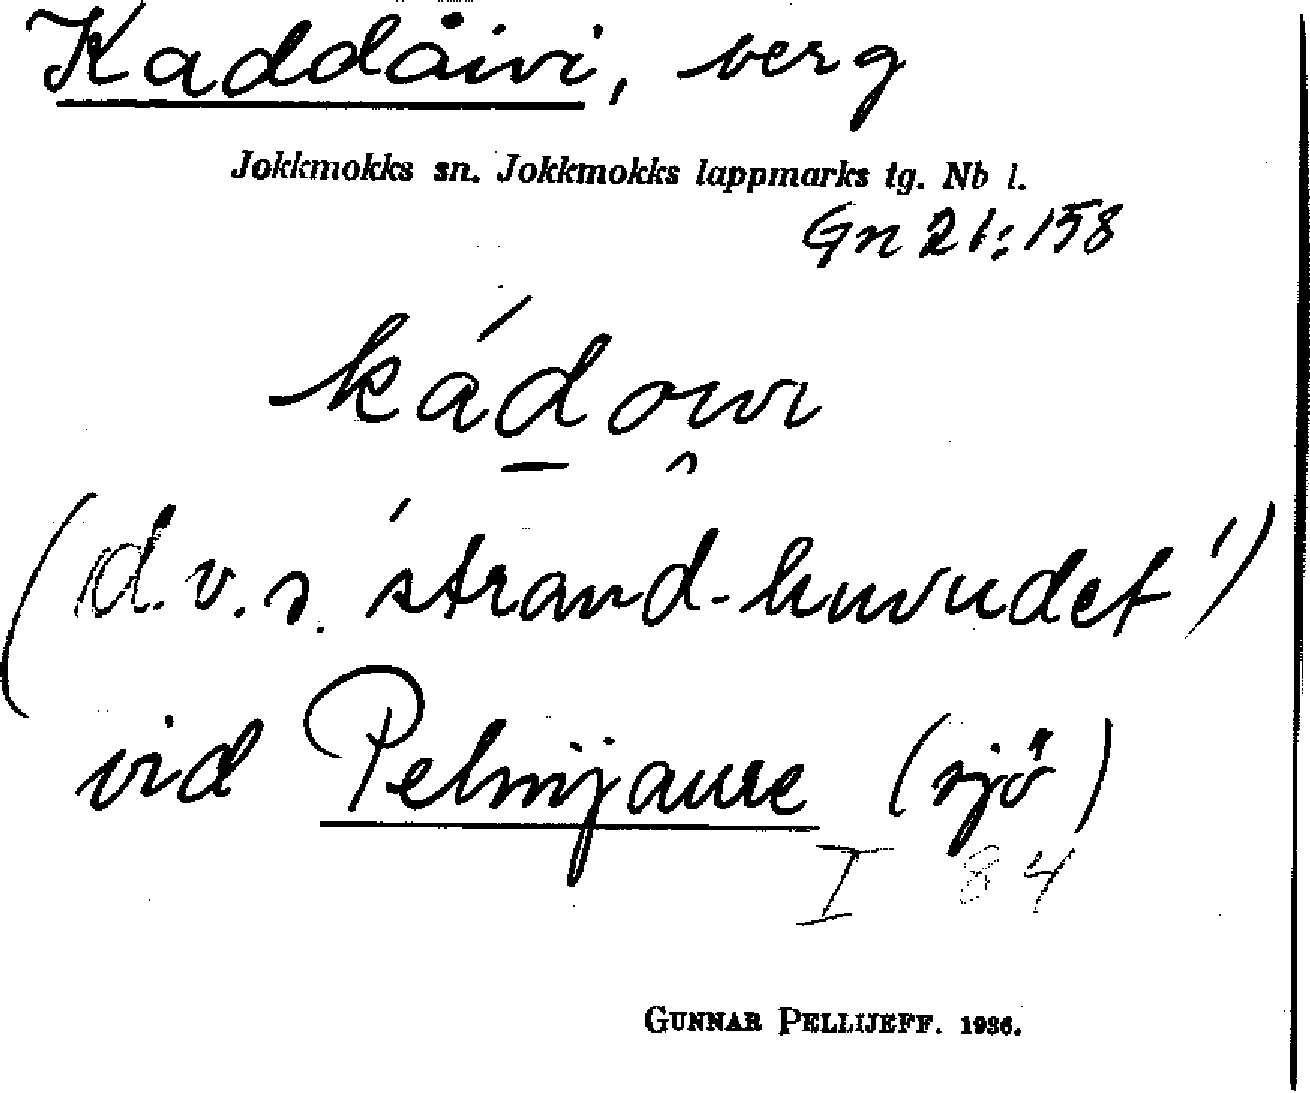 Kaddåivi, berg
Jokkmokks sn. Jokkmokks lappmarks tg. Nb l.
Gn 21:158
kád̠oi̯vi
(d.v.s. 'strand-huvudet')
vid Pelnijaure (sjö)
I 84
GUNNAR PELLIJEFF. 1936.